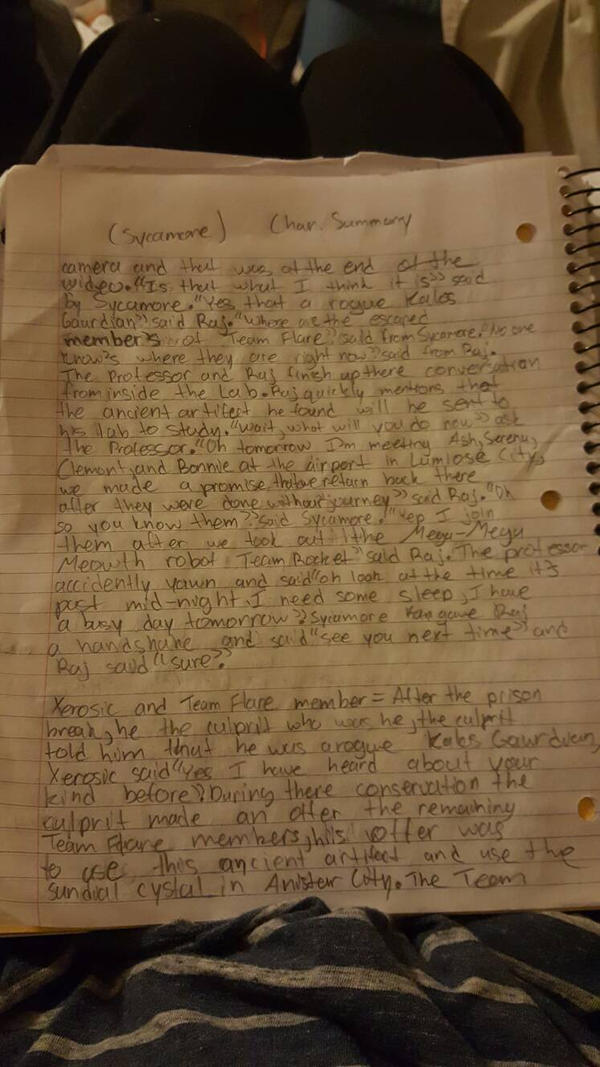 (Sycamore) Char. Summary
camera and that was at the end of the
video. "Is that what I think it is" said
by Sycamore. "Yes that a rogue Kalos
Gaurdian" said Raj. "Where are the escaped
member's of Team Flare" said from Sycamore. "No one
know's where they are right now" said from Raj.
The Professor and Raj finish up there conversation
from inside the Lab. Raj quickly mentions that
the ancient artifect he found will be sent to
his lab to study. "Wait, what will you do now" ask
the Professor. "Oh tomorrow I'm meeting Ash, Serena,
Clemont, and Bonnie at the airport in Lumiose City,
we made a promise that we return back there
after they were done with our journey" said Raj. "Oh
so you know them?" said Sycamore. "Yep I join
them after we took out the Mega-Mega
Meowth robot Team Rocket" said Raj. The professor
accidently yawn and said "oh look at the time it's
past mid-night, I need some sleep, I have
a busy day tomorrow" Sycamore gave Raj
a handshake and said "see you next time" and
Raj said "sure".
Xerosic and Team Flare member = After the prison
break, he the culprit who was he, the culprit
told him that he was a rogue Kalos Gaurdian,
Xerosic said "Yes I have heard about your
kind before". During there conservation the
culprit made an offer the remaining
Team Flare members, his offer was
to use this ancient artifact and use the
sundial cystal in Anistar City. The Team